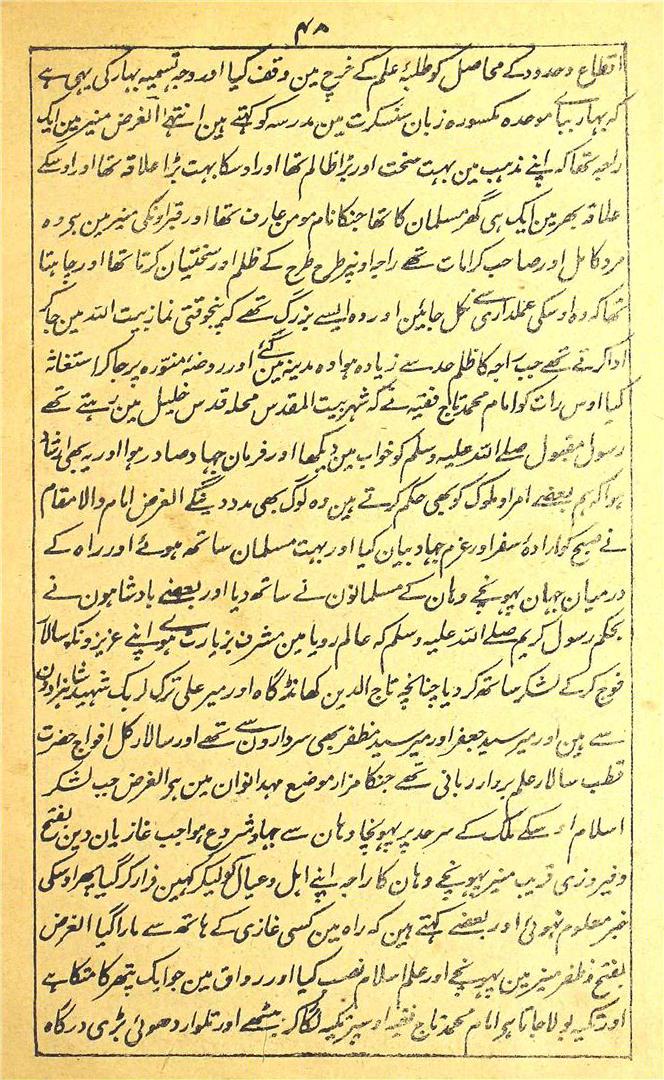 ۴۸
اقطاع وحدود کے محاصل کو طلبۂ علم کے خرچ مین وقف کیا اور وجہ تسمیہ بہار کی یہی ہے
کہ بہار بباے موحدہ مکسورہ زبان سنسکرت مین مدرسہ کو کہتے ہین انتہے الغرض منیر مین ایک
راجہ تھا کہ اپنے مذہب مین بہت سخت اور بڑا ظالم تھا اور اوسکا بہت بڑا علاقہ تھا اور اوسکے
علاقہ بھر مین ایک ہی گھر مسلمان کا تھا جنکا نام مومن عارف تھا اور قبر اونکی منیر مین ہے وہ
مرد کامل اور صاحب کرامات تھے راجہ اونپر طرح طرح کے ظلم اور سختیان کرتا تھا اور چاہتا
تھا کہ وہ اوسکی عملداری سے نکل جائین اور وہ ایسے بزرگ تھے کہ پنجوقتی نماز بیت اللہ مین جا کر
ادا کرتے تھے جب راجہ کا ظلم حد سے زیادہ ہوا وہ مدینہ مین گئے اور روضۂ منورہ پر جا کر استغاثہ
کیا اوس رات کو امام محمد تاج فقیہ نے کہ شہر بیت المقدس محلہ قدس خلیل مین رہتے تھے
رسول مقبول صلے اللہ علیہ وسلم کو خواب مین دیکھا اور فرمان جہاد صادر ہوا اور یہ بھی ارشاد
ہوا کہ ہم بعضے امرا و ملوک کو بھی حکم کرتے ہین وہ لوگ بھی مدد دینگے الغرض امام والا مقام
نے صبح کو ارادۂ سفر اور عزم جہاد بیان کیا اور بہت مسلمان ساتھ ہوئے اور راہ کے
درمیان جہان پہونچے وہان کے مسلمانون نے ساتھ دیا اور بعضے بادشاہون نے
بحکم رسول کریم صلے اللہ علیہ وسلم کہ عالم رویا مین مشرف بزیارت ہوے اپنے عزیزونکو سالار
فوج کرکے لشکر ساتھ کر دیا چنانچہ تاج الدین کھانڈگاہ اور میر علی ترک لربک شہید شاہزادون
سے ہین اور میر سید جعفر اور میر سید مظفر بھی سردارون سے تھے اور سالار کل افواج حضرت
قطب سالار علم بردار ربانی تھے جنکا مزار موضع مہدانوان مین ہے الغرض جب لشکر
اسلام اوسکے ملک کے سرحد پر پہونچا وہان سے جہاد شروع ہوا جب غازیان دین بفتح
و فیروزی قریب منیر پہونچے وہان کا راجہ اپنے اہل و عیال کو لیکر کہین فرار کر گیا پھر اوسکی
خبر معلوم نہوئی اور بعضے کہتے ہین کہ راہ مین کسی غازی کے ہاتھ سے مارا گیا الغرض
بفتح و ظفر منیر مین پہونچے اور علم اسلام نصب کیا اور رواق مین جو ایک پتھر کا متکا ہے
اور تکیہ بولا جاتا ہے امام محمد تاج فقیہ اوسپر تکیہ لگا کر بیٹھے اور تلوار دھوئی بڑی درگاہ